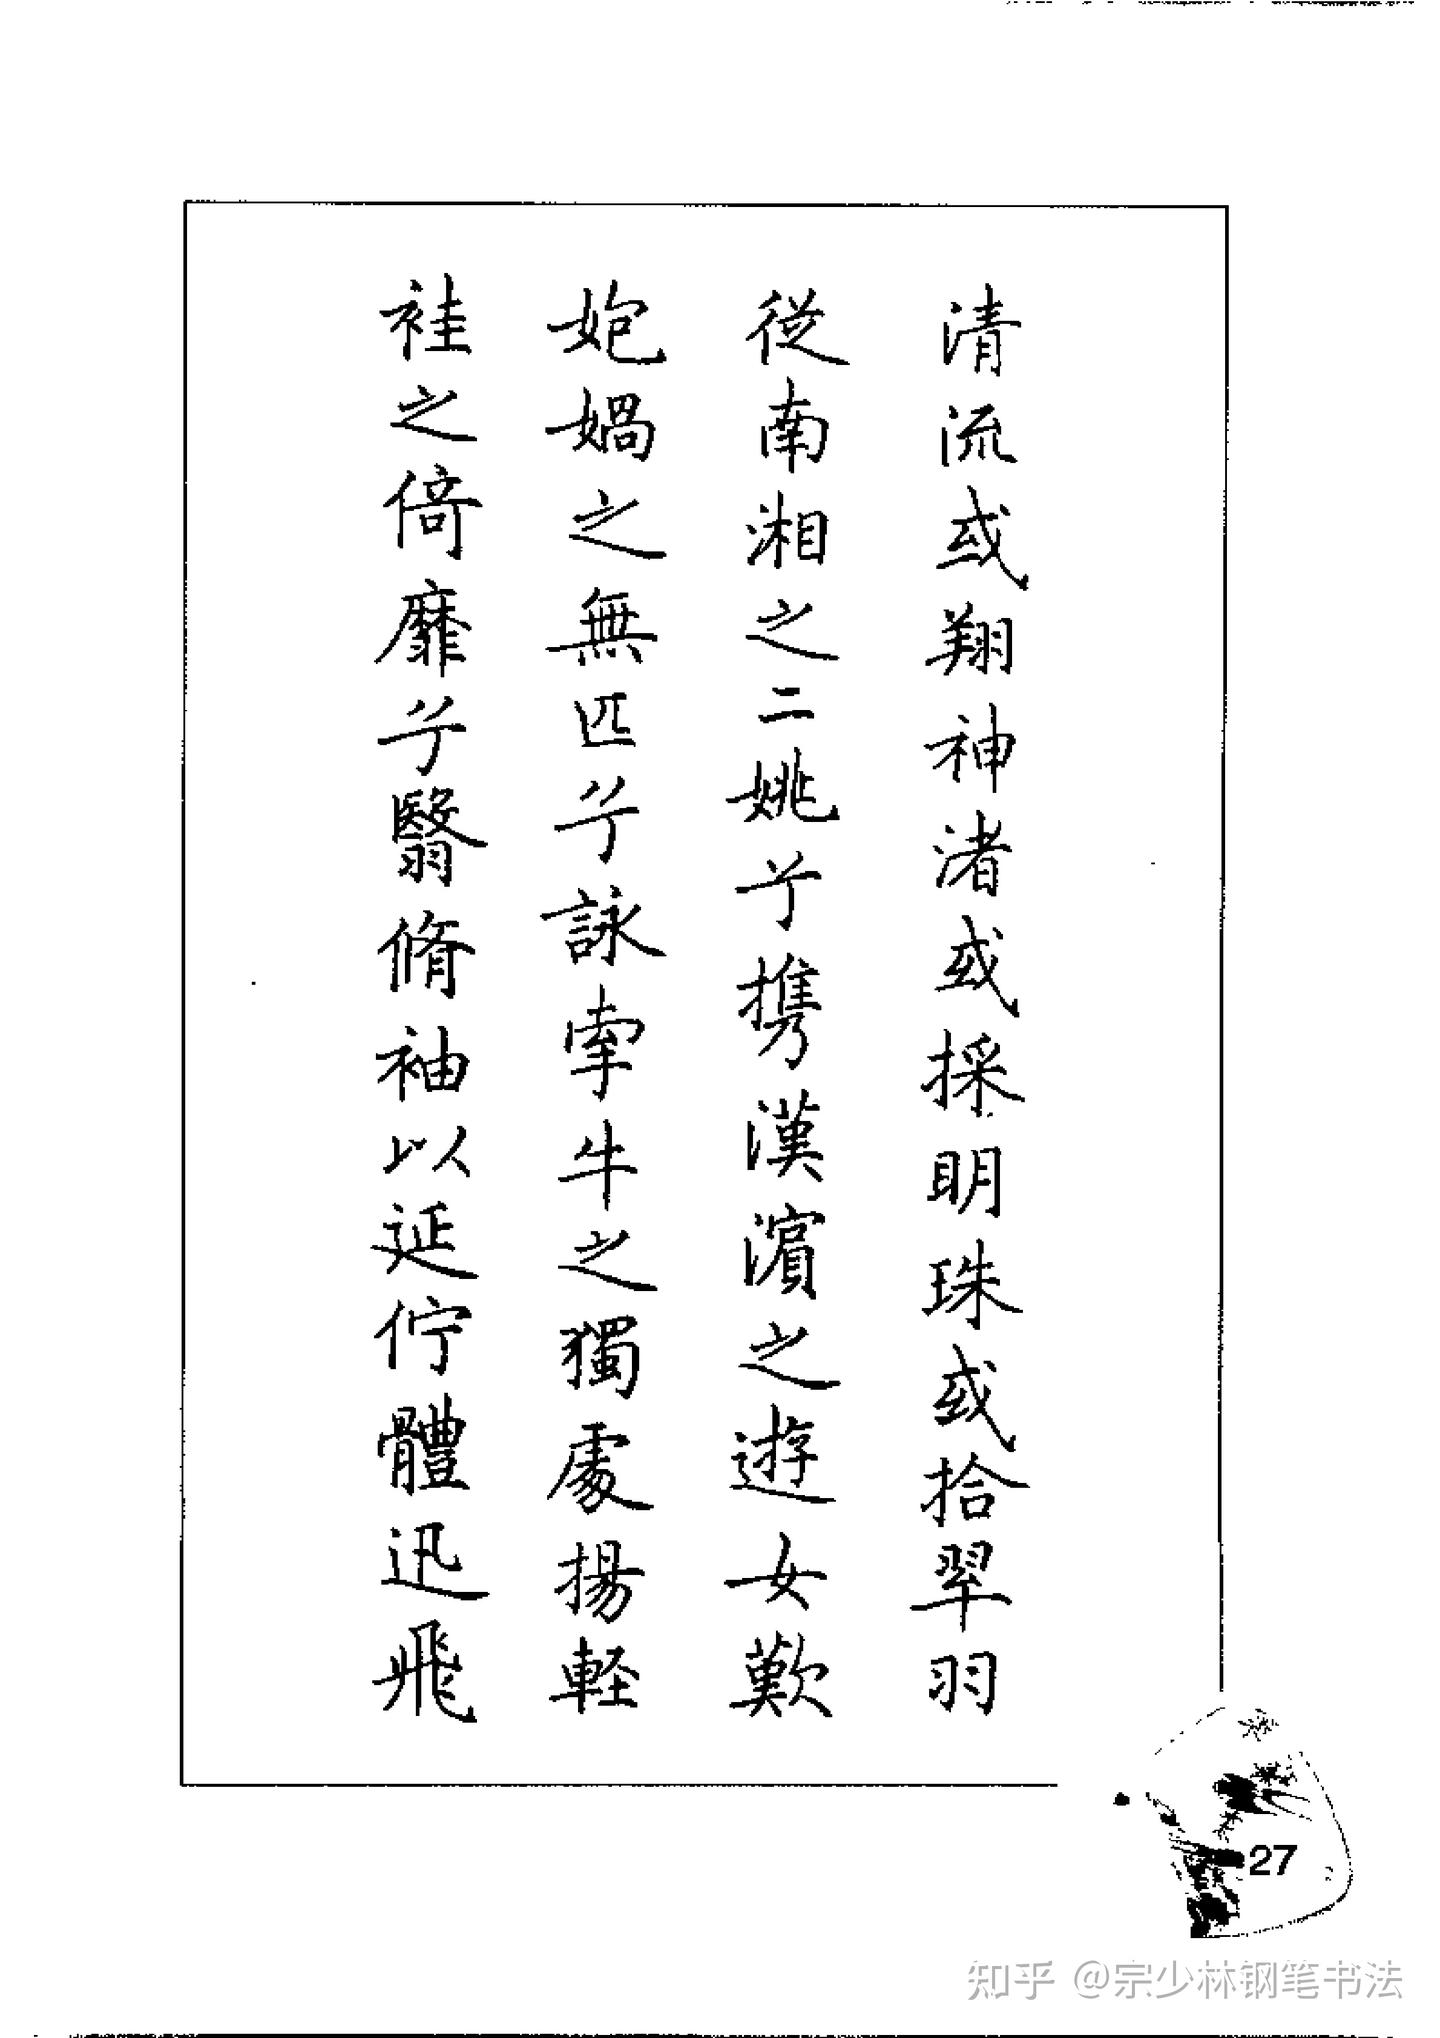 清流或翔神渚或採明珠或拾翠羽
從南湘之二姚兮携漢濱之遊女歎
㚿媧之無匹兮詠牽牛之獨處揚軽
袿之倚靡兮翳脩袖以延佇體迅飛
27
知乎 @宗少林钢笔书法